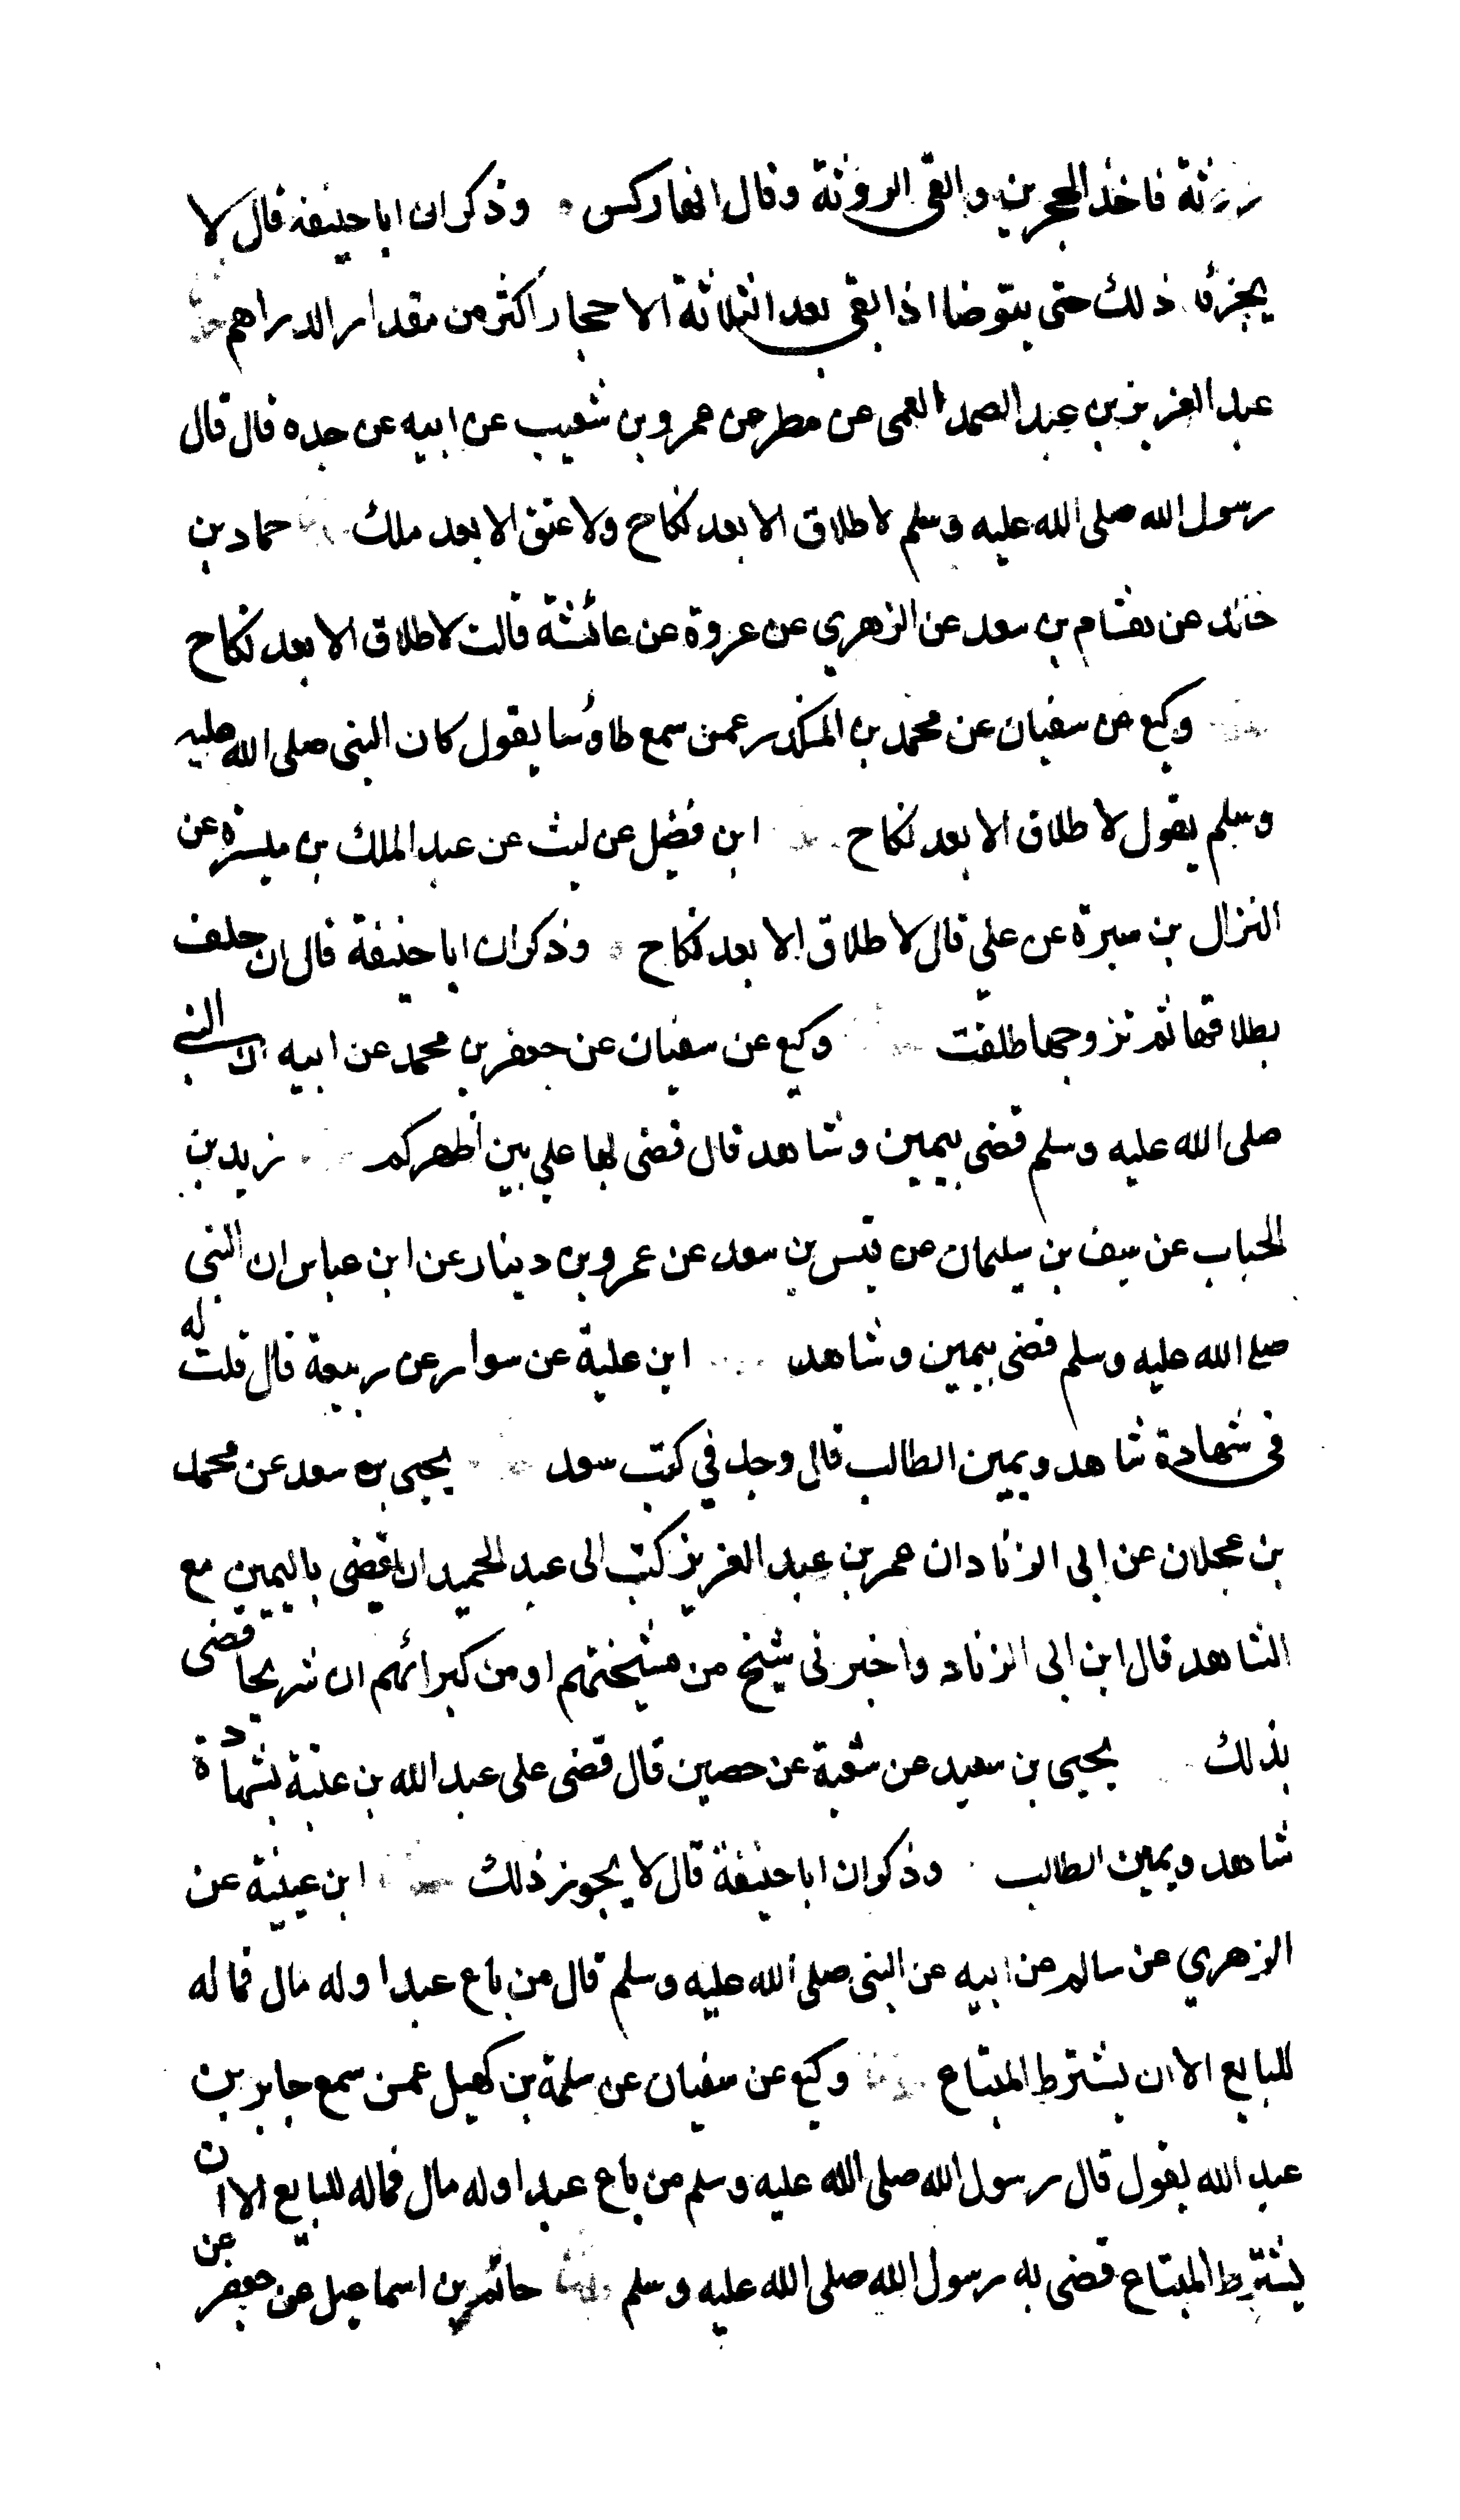 وروثة فاخذ الحجرين والقى الروثة وقال انها ركس وذكر ان ابا حنيفة قال لا
يجزئه ذلك حتى يتوضا اذا بقى بعد الثلاثة الاحجار اكثر من مقدار الدراهم
عبد العزيز بن عبد الصمد العمى عن مطر عن عمرو بن شعيب عن ابيه عن جده قال قال
رسول الله صلى الله عليه وسلم لا طلاق الا بعد نكاح ولا عتق الا بعد ملك حماد بن
خالد عن هشام بن سعد عن الزهري عن عروة عن عائشة قالت لا طلاق الا بعد نكاح
وكيع عن سفيان عن محمد بن المنكدر عمن سمع طاؤسا يقول كان النبى صلى الله عليه
وسلم يقول لا طلاق الا بعد نكاح ابن فضيل عن ليث عن عبد الملك بن ميسرة عن
النزال بن سبرة عن علي قال لا طلاق الا بعد نكاح وذكر ان ابا حنيفة قال ان حلف
بطلاقها ثم تزوجها طلقت وكيع عن سفيان عن جعفر بن محمد عن ابيه ان النبي
صلى الله عليه وسلم قضى بيمين وشاهد قال قضى بها علي بين اظهركم زيد بن
الحباب عن سيف بن سليمان عن قيس بن سعد عن عمرو بن دينار عن ابن عباس ان النبي
صلى الله عليه وسلم قضى بيمين وشاهد ابن علية عن سوار عن ربيعة قال قلت له
فى شهادة شاهد ويمين الطالب قال وجد في كتب سعد يحيى بن سعد عن محمد
بن عجلان عن ابى الزناد ان عمر بن عبد العزيز كتب الى عبد الحميد ان يقضى باليمين مع
الشاهد قال ابن ابى الزناد واخبرنى شيخ من مشيختهم او من كبرائهم ان شريحا قضى
بذلك يحيى بن سعيد عن شعبة عن حصين قال قضى على عبد الله بن عتبة بشهادة
شاهد ويمين الطالب وذكر ان ابا حنيفة قال لا يجوز ذلك ابن عيينة عن
الزهري عن سالم عن ابيه عن النبى صلى الله عليه وسلم قال من باع عبدا وله مال فماله
للبايع الا ان يشترط المبتاع وكيع عن سفيان عن سلمة بن كهيل عمن سمع جابر بن
عبد الله يقول قال رسول الله صلى الله عليه وسلم من باع عبدا وله مال فماله للبايع الا ان
يشترط المبتاع قضى به رسول الله صلى الله عليه وسلم حاتم بن اسماعيل عن جعفر عن